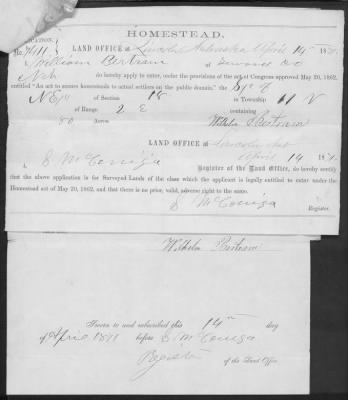 HOMESTEAD.
APPLICATION. LAND OFFICE at Lincoln Nebraska April 14 18
I William Bertram of Seward Co
Neb do hereby apply to enter, under the provisions of the act of Congress approved May 20, 1862,
entitled "An act to secure homesteads to actual settlers on the public domain," the
of Section 18 in Township 11 N
of Range 2 E containing
80 Acres Wilhelm Bertram
LAND OFFICE at Lincoln Neb
April 14 18
I S McConiga Register of the Land Office, do hereby certify
that the above application is for Surveyed Lands of the class which the applicant is legally entitled to enter under the
Homestead act of May 20, 1862, and that there is no prior, valid, adverse right to the same.
S McConiga
Register.
Wilhelm Bertram
Sworn to and subscribed this 14th day
of April 1871 before S McConiga
Register of the Land Office